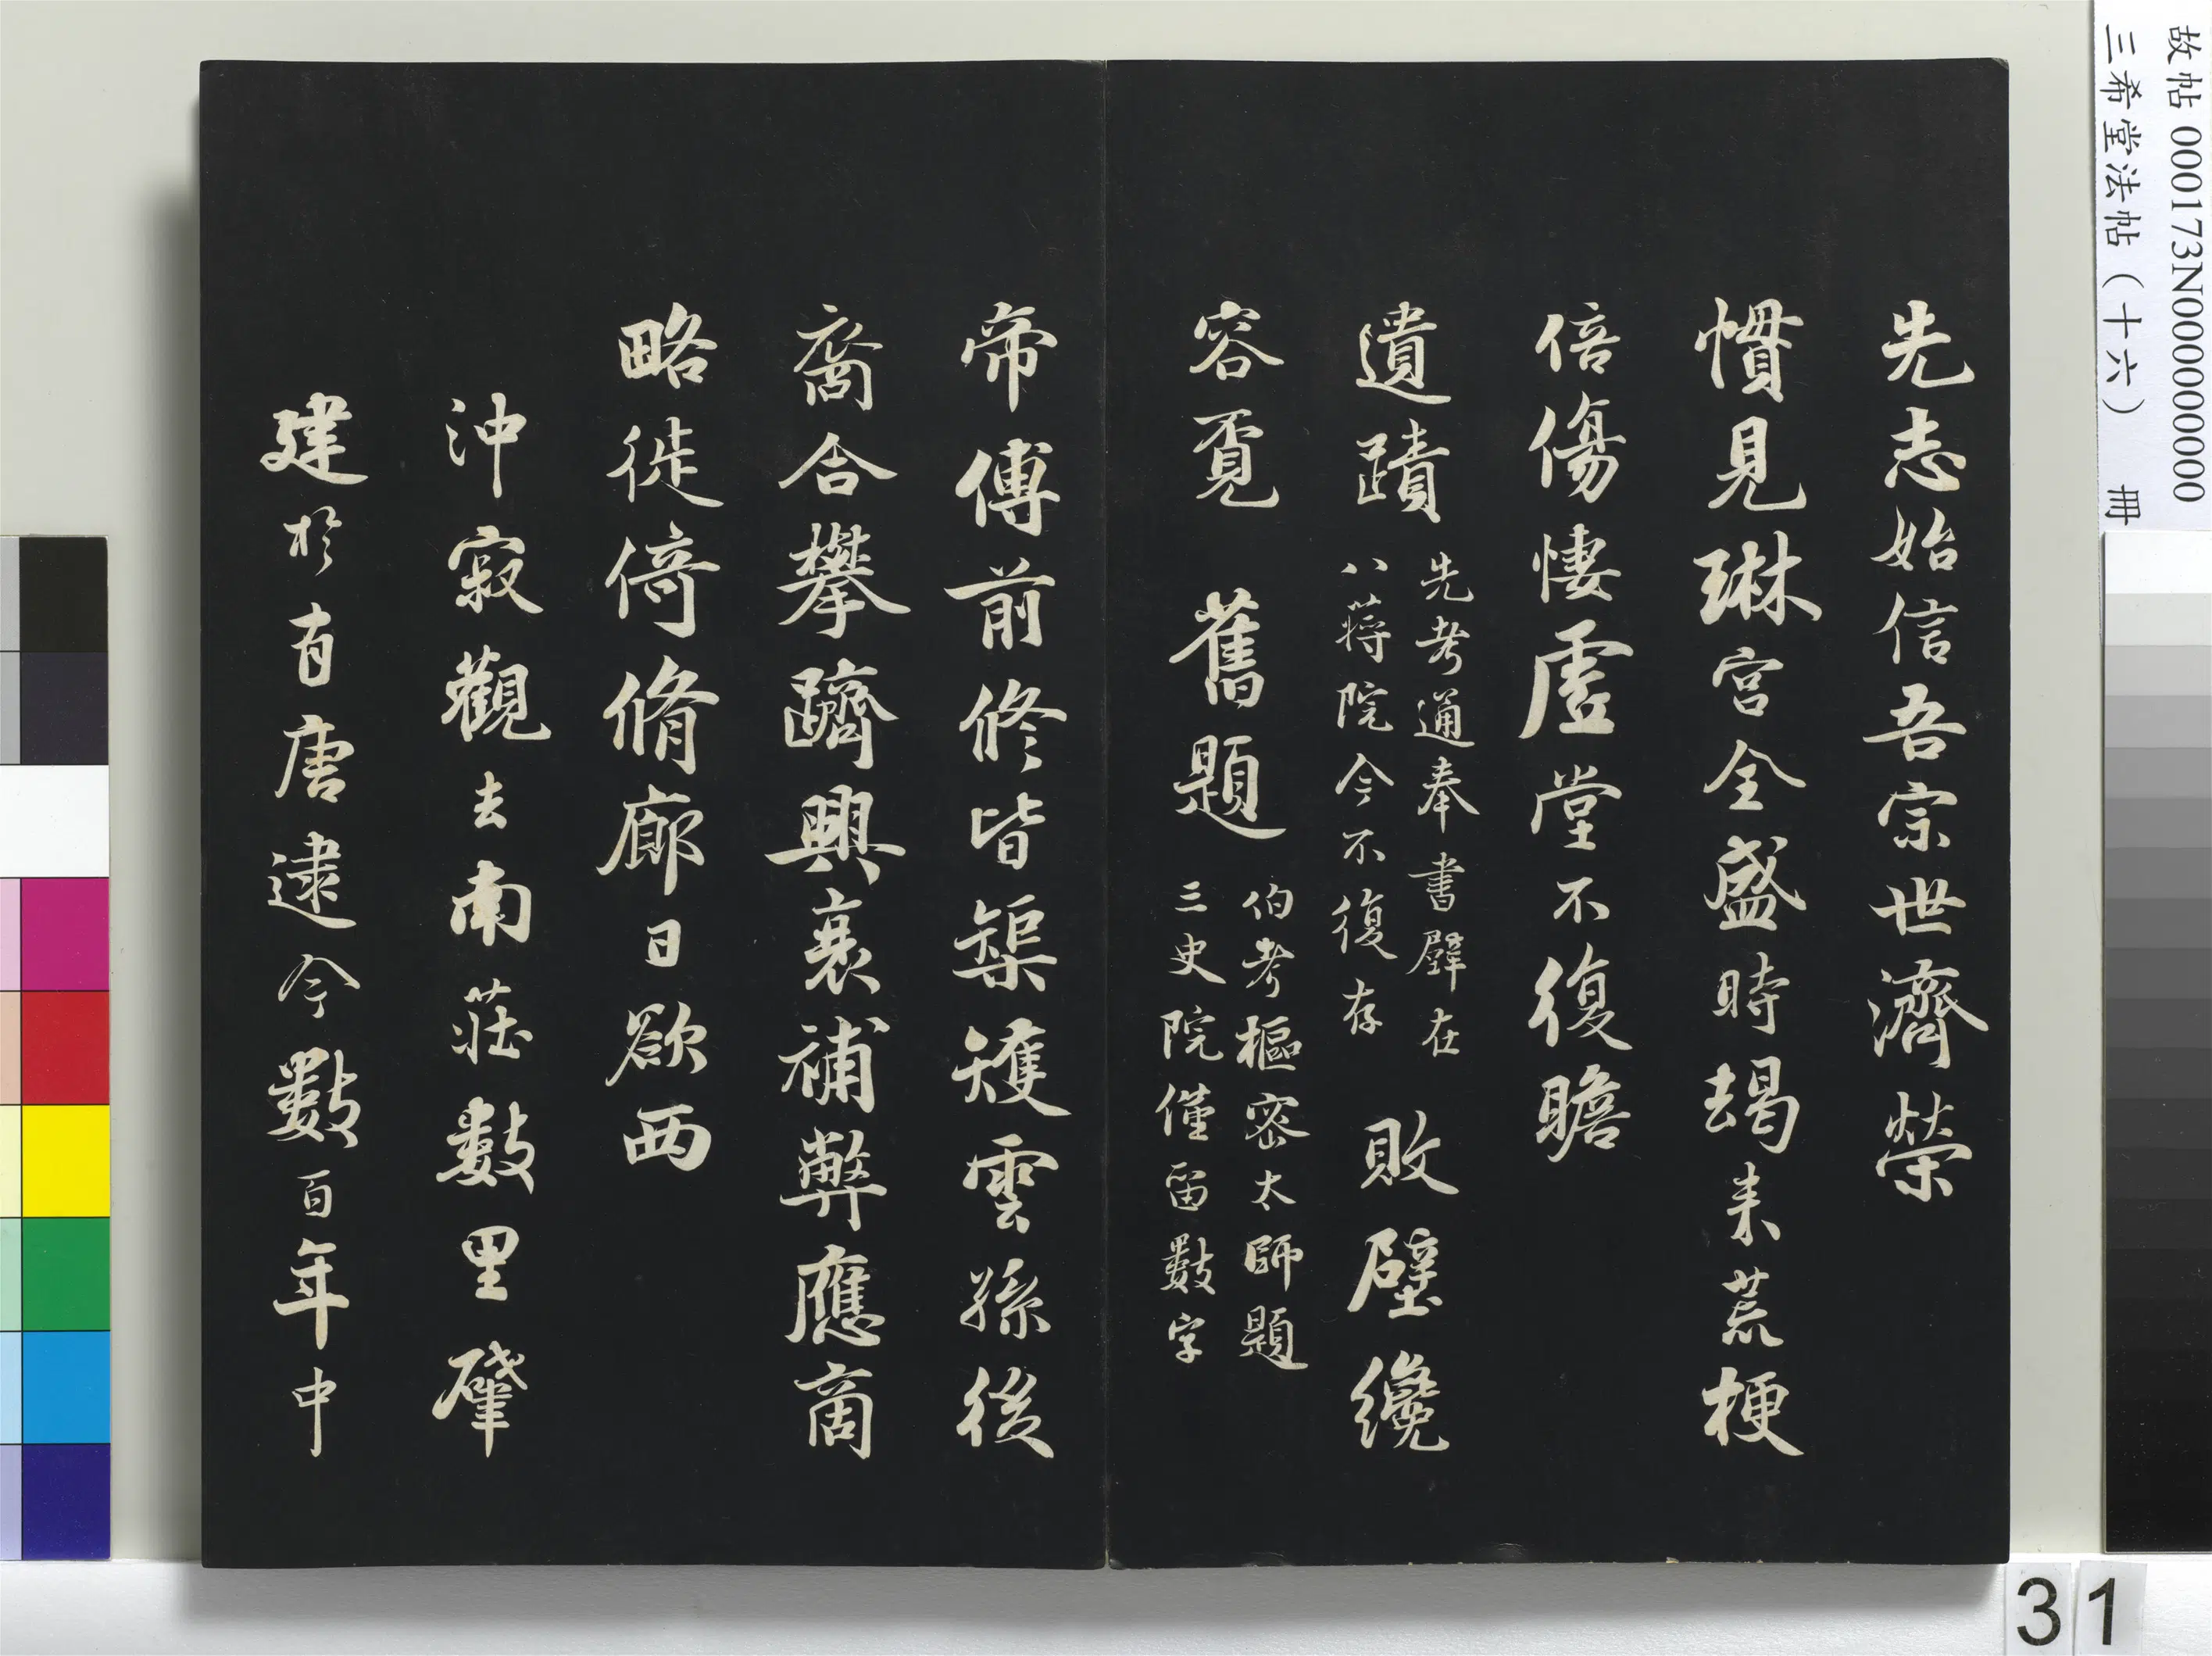 先志始信吾宗世濟榮
慣見琳宮全盛時朅来荒梗
倍傷悽虛堂不復瞻
遺蹟
先考通奉書壁在
八蔣院今不復存
敗壁纔
容覔舊題
伯考樞密太師題
三史院僅留數字
帝傅前修皆榘矱雲孫後
裔合攀躋興衰補弊應商
略徙倚脩廊日欲西
沖寂觀去南莊數里肇
建於有唐逮今數百年中
故帖 000173N000000000
三希堂法帖（十六） 冊
31